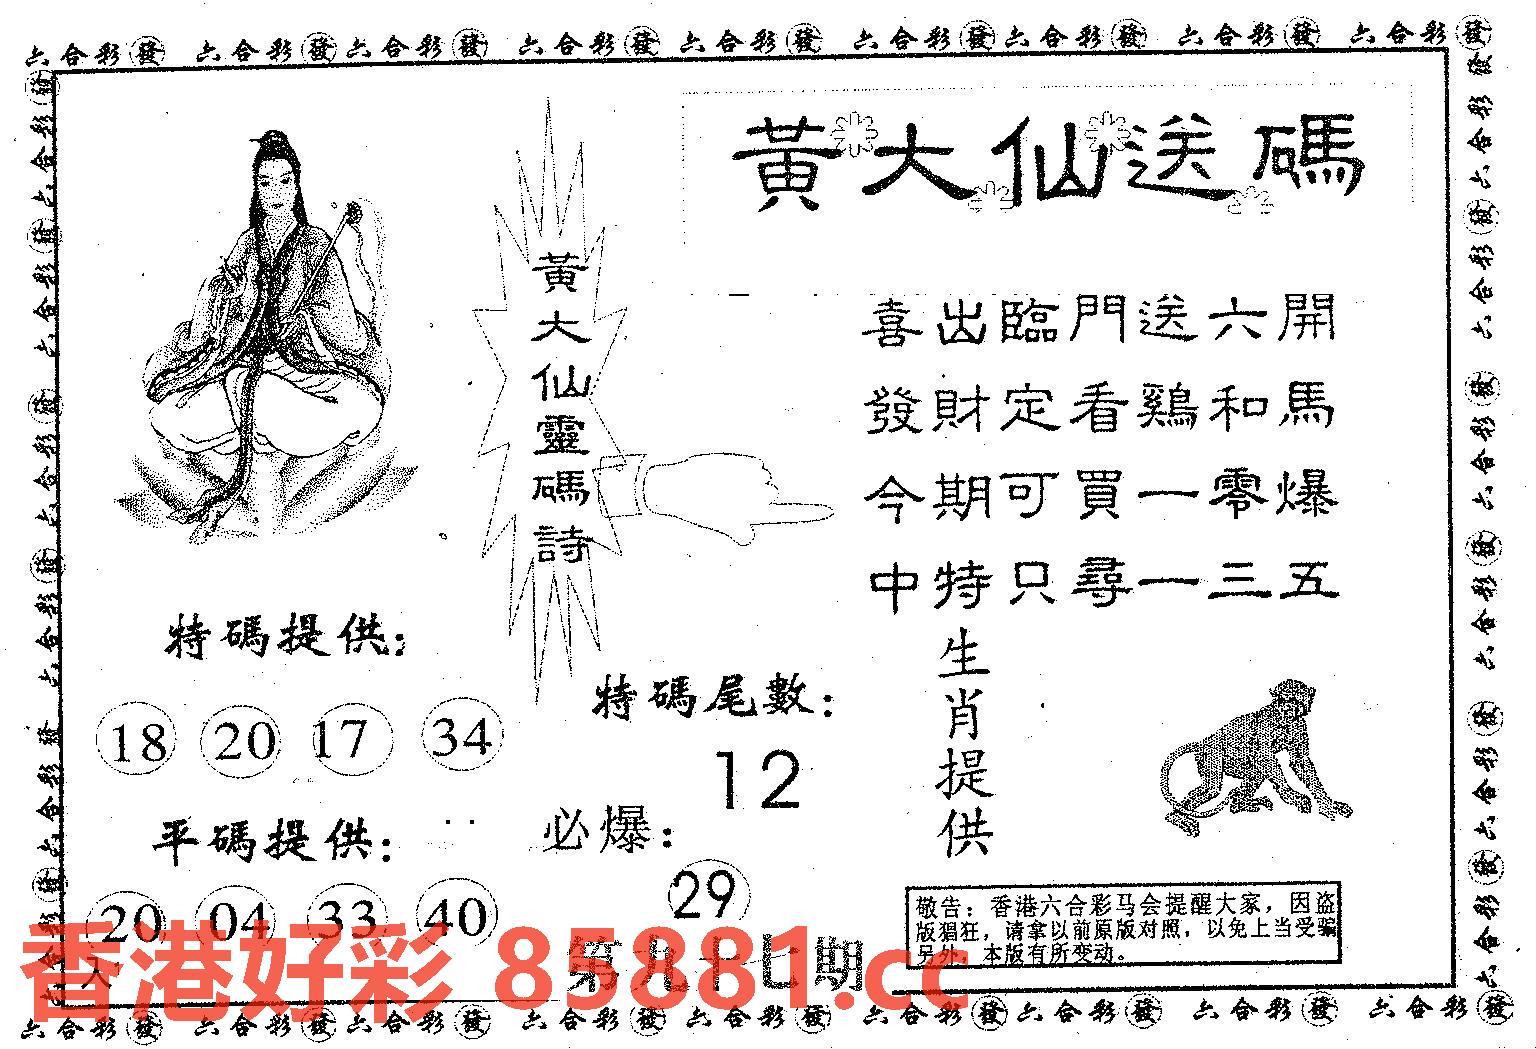 六合彩發 六合彩發六合彩發 六合彩發 六合彩發 六合彩發六合彩發 六合彩發 六合彩發
黃大仙送碼
黃大仙靈碼詩
喜出臨門送六開
發財定看鷄和馬
今期可買一零爆
中特只尋一三五
特碼提供：
18 20 17 34
特碼尾數：
12
生肖提供
平碼提供：
20 04 33 40
必爆：
29
敬告：香港六合彩马会提醒大家，因盗
版猖狂，请拿以前原版对照，以免上当受骗
另外，本版有所变动。
第九十七期
香港好彩 85881.cc
六合彩發 六合彩發六合彩發 六合彩發 六合彩發 六合彩發六合彩發 六合彩發 六合彩發